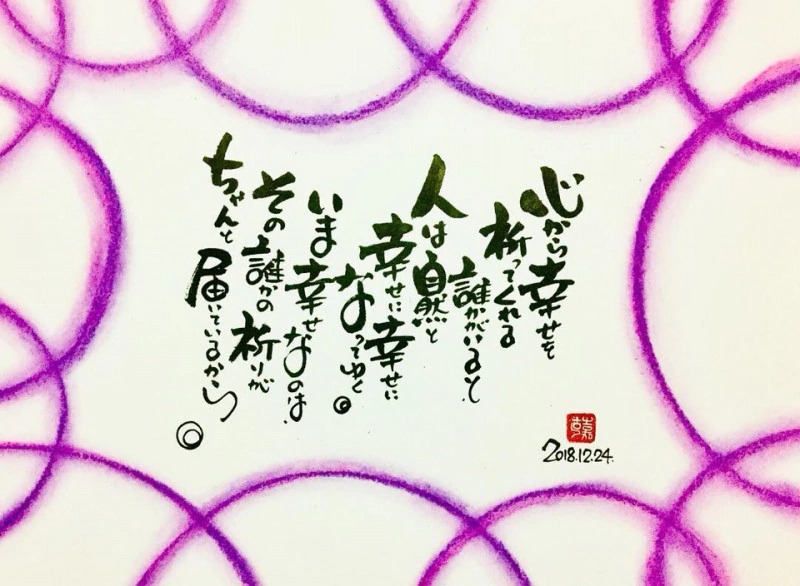 心から幸せを
祈ってくれる
誰かがいると
人は自然と
幸せに幸せに
なってゆく
いま幸せなのは
その誰かの祈りが
ちゃんと
届いているから
2018.12.24.